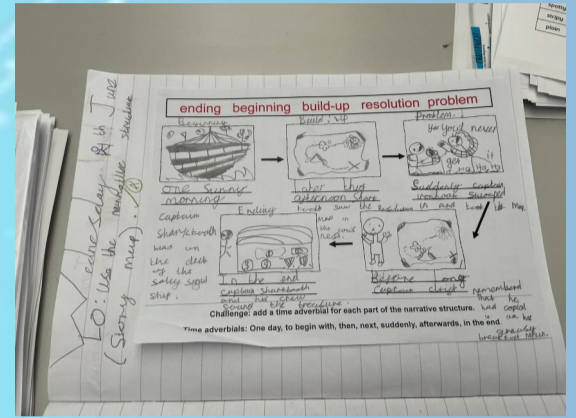 spotty
stripy
plain
Wednesday 8th June
LO: Use the narrative structure
(Story map).
ending beginning build-up resolution problem
Beginning
One Sunny
morning
Captain
Sharktooth
was on
the deck
of the
salty squid
ship.
Build up
Later that
afternoon
Shark
tooth saw the
map in
the
nest.
Problem
You'll never
get it
Ha, Ha, Ha
Suddenly captain
swooped
in and took the map.
Resolution
Before long
Captain
remembered
that he
had
Ending
In the end
captain Sharktooth
and his crew
found the treasure.
Challenge: add a time adverbial for each part of the narrative structure.
Time adverbials: One day, to begin with, then, next, suddenly, afterwards, in the end